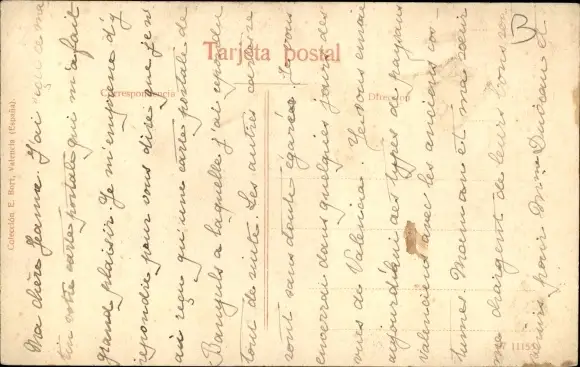 Tarjeta postal
Correspondencia
Dirección
Colección. E. Bort, Valencia (España).
Ma chère Jeanne. J'ai reçu ce ma
tin votre carte postale qui m'a fait
grand plaisir. Je m'empresse d'y
répondre pour vous dire que je n'
ai reçu qu'une carte postale de
Banyuls a laquelle j'ai répondu
tout de suite. Les autres cartes
sont sans doute égarées. Je vous
enverrai dans quelques jours des
vues de Valencia. Je vous envoie
aujourd'hui des types de paysans
valenciens avec les anciens cos-
tumes. Maman et ma sœur
me chargent de leurs bons sou
venirs pour Mme et